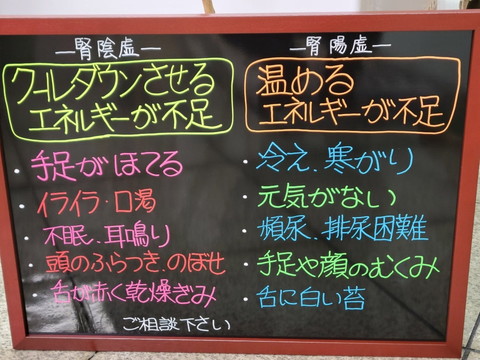 ―腎陰虚―
クールダウンさせる
エネルギーが不足
・手足がほてる
・イライラ・口渇
・不眠、耳鳴り
・頭のふらつき、のぼせ
・舌が赤く乾燥ぎみ
―腎陽虚―
温める
エネルギーが不足
・冷え、寒がり
・元気がない
・頻尿、排尿困難
・手足や顔のむくみ
・舌に白い苔
ご相談下さい